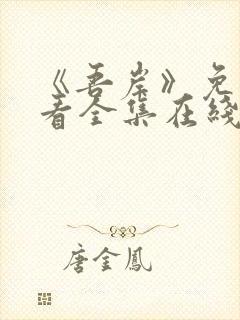 《吾岸》免
看全集在线
唐金鳳